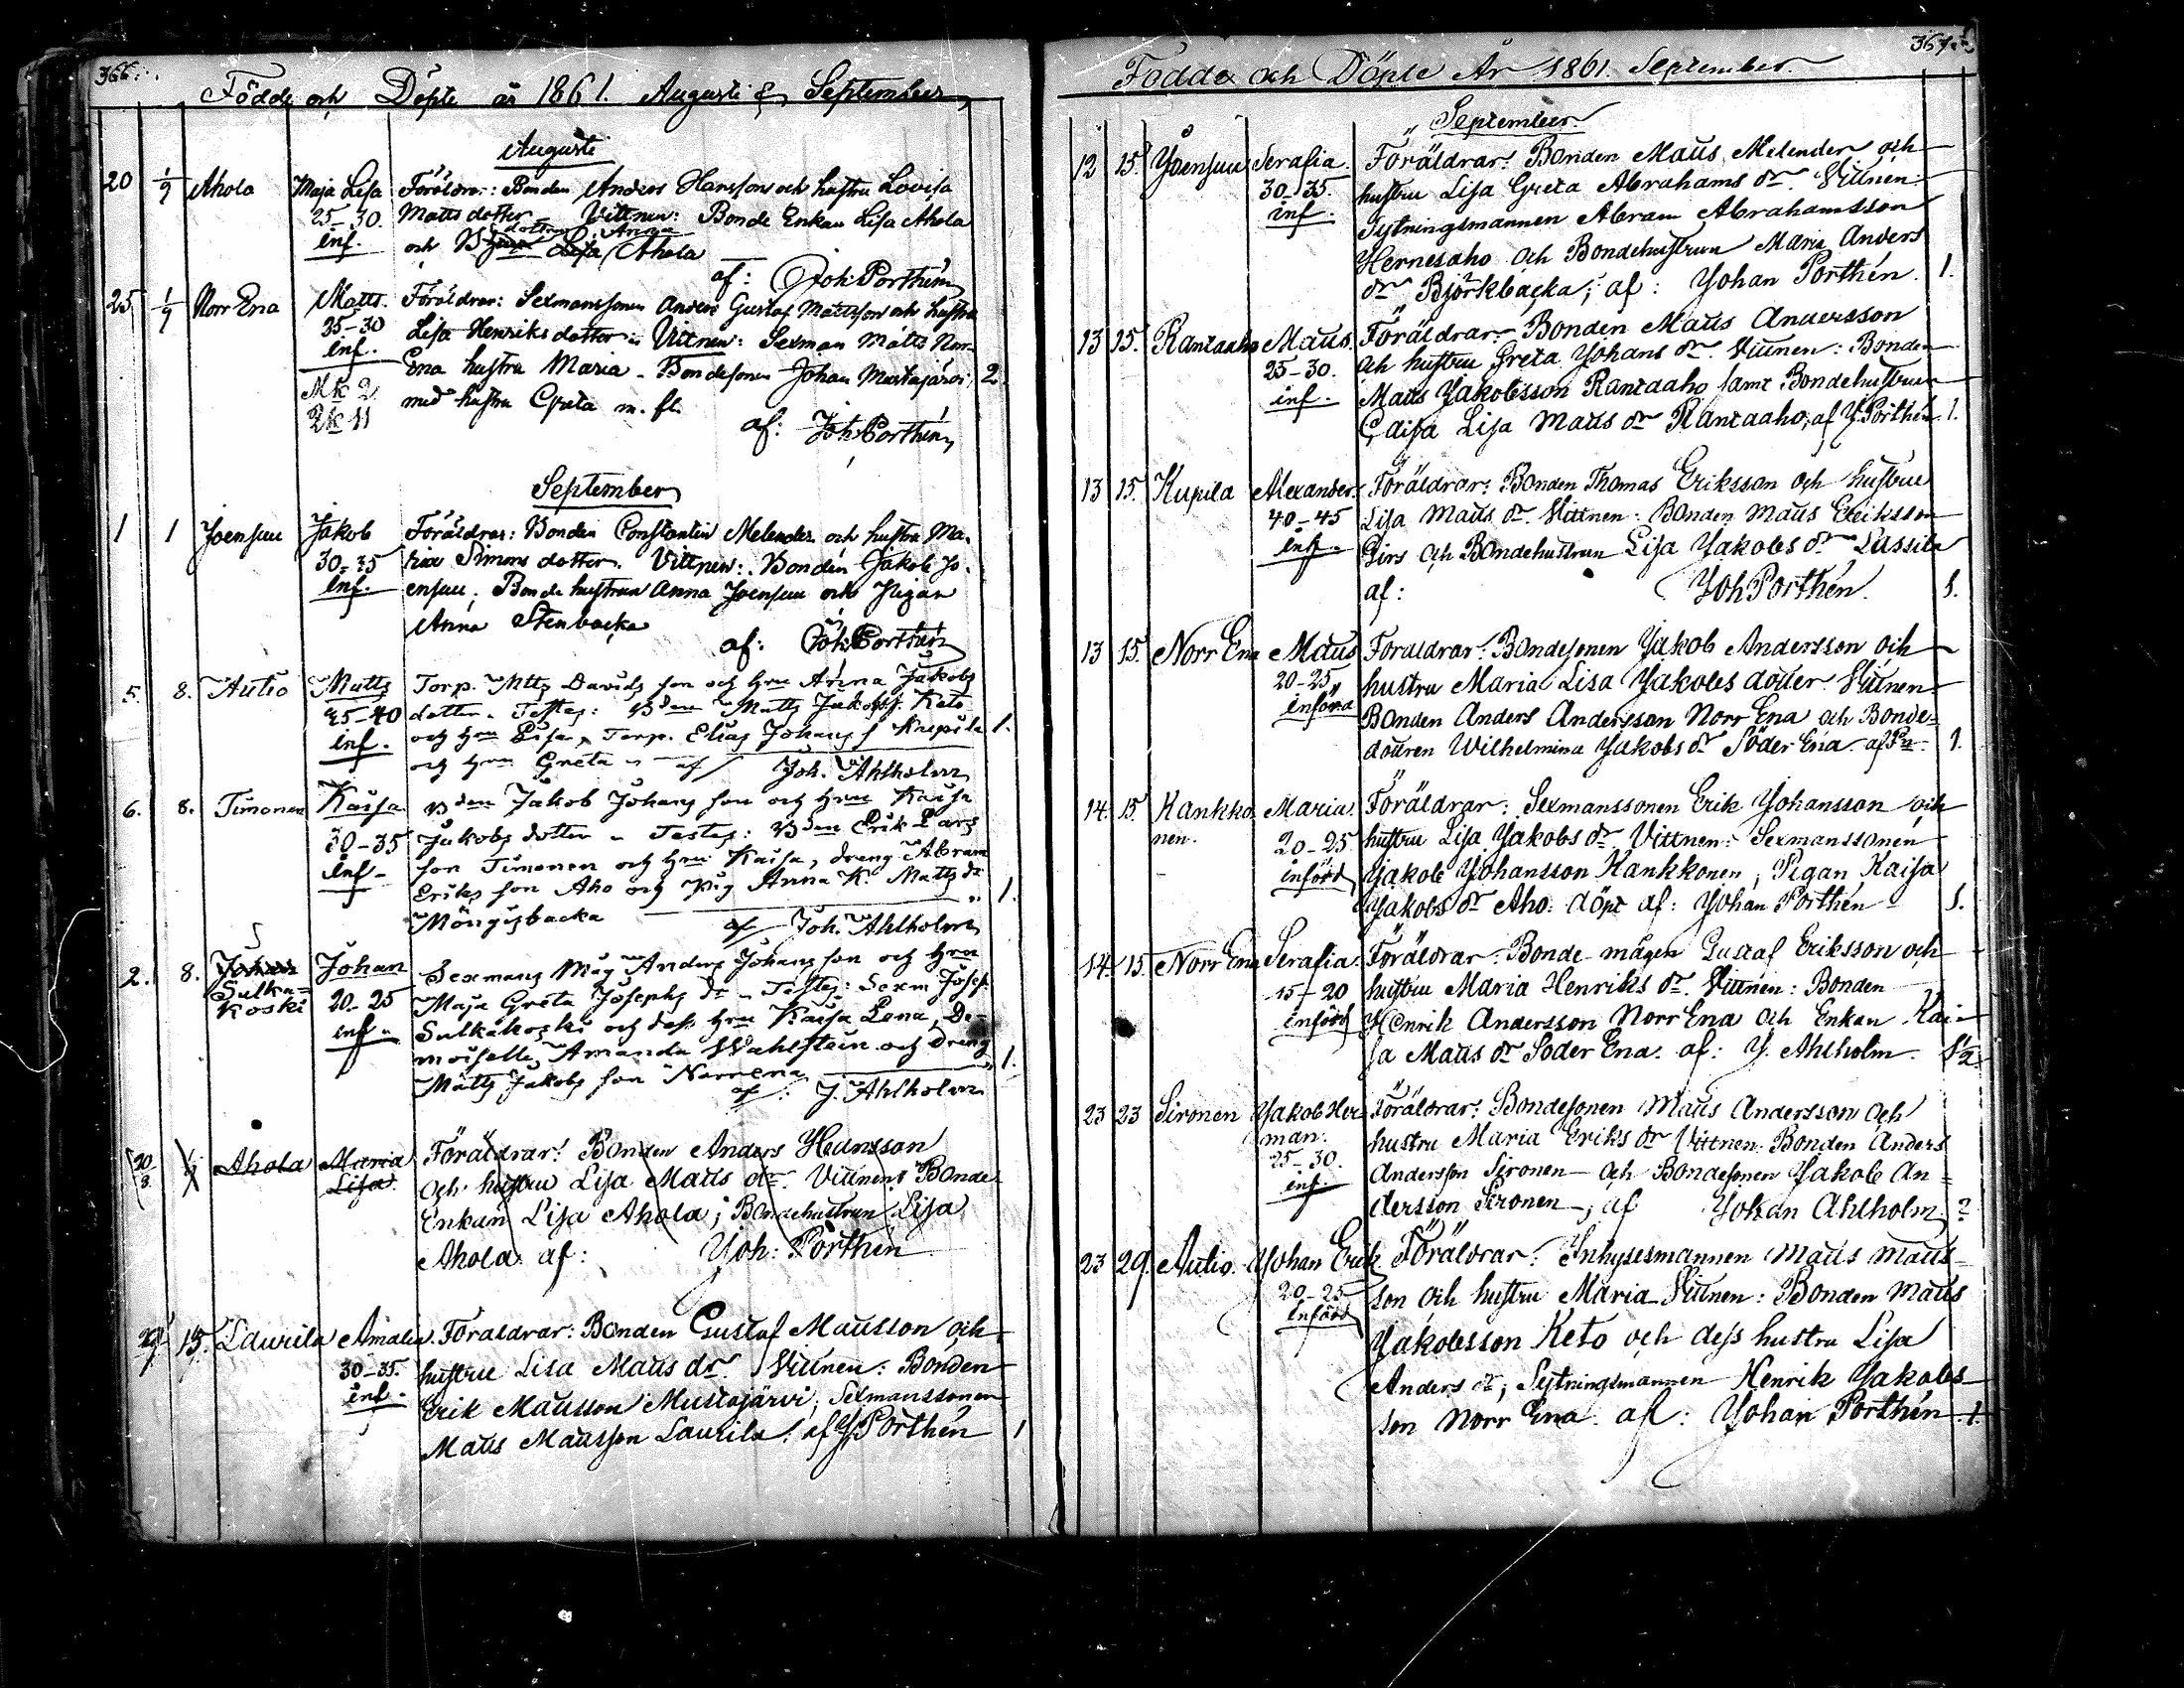 366.
Födde och Döpte år 1861. Augusti & September
Augusti
20 1/9 Ahola Maja Lisa Föräldrar: Bonden Anders Hansson och hustru Lovisa
25-30. Matts dotter Vittnen: Bonde Enkan Lisa Ahola
inf. och dottren Anna Lisa Ahola
af: Joh. Porthén
25 1/9 Norr Ena Matts. Föräldrar: Sexmanssonen Anders Gustaf Mattsson och hustru
25-30 Lisa Henriks dotter. Vittnen: Sexman Matts Norr
inf. Ena hustru Maria - Bondesonen Johan Mustajärvi 2
Mk 2 med hustru Greta m. fl.
af: Joh. Porthén
September
1 1 Joensuu Jakob Föräldrar: Bonden Constantin Melender och hustru Ma-
30-35 ria Simons dotter. Vittnen: Bonden Jakob Jo-
inf. ensuu, Bonde hustrun Anna Joensuu och Pigan
Anna Stenbacka
af: Joh. Porthén
5. 8. Autio Matts Torp. Matts Davids son och Hru Anna Jakobs
35-40 dotter. Testes: Bden Matts Jakobs. Keto
inf. och Hru Lisa, Torp. Elias Johans s Knupila 1.
och Hru Greta af Joh. Ahlholm
6. 8. Timonen Kaisa Bden Jakob Johans son och Hru Kaisa
30-35 Jakobs dotter. Testes: Bden Erik Lars
inf. son Timonen och Hru Kaisa, dreng Abram
Eriks son Aho och pig Anna K. Matts dr 1.
Möngisbacka af Joh. Ahlholm
2. 8. Johan Johan Sexmans Måg Anders Johans son och Hru
Sulka- 20-25 Maja Greta Josephs dr. Testes: Sexm Josef
koski inf. Sulkakoski och dess Hru Kaisa Lena, De-
moiselle Amanda Wahlstein och dreng 1.
Matts Jakobs son Norrena
af: J. Ahlholm
20/8 1/9 Ahola Maria Föräldrar: Bonden Anders Hansson
Lisa. och hustru Lisa Matts dr. Vittnen: Bonde
Enkan Lisa Ahola; Bondehustrun Lisa
Ahola af: Joh: Porthén
15. Laurila Amalia. Föräldrar: Bonden Gustaf Mattsson och
30-35. hustru Lisa Matts dr. Vittnen: Bonden
inf. Erik Mattsson Mustajärvi, Sexmanssonen
Matts Mattsson Laurila. af J. Porthén 1
367.
Födde och Döpte År 1861. September.
September
12 15. Joensuu Serafia. Föräldrar: Bonden Matts Melender och
30-35. hustru Lisa Greta Abrahams dr. Vittnen:
inf. Sytningsmannen Abram Abrahamsson
Hernesaho och Bondehustrun Maria Anders
dr Björkbacka; af: Johan Porthén. 1.
13 15. Rantaaho Matts. Föräldrar: Bonden Matts Andersson
25-30. och hustru Greta Johans dr. Vittnen: Bonden
inf. Matts Jakobsson Rantaaho samt Bondehustrun
Caisa Lisa Matts dr Rantaaho, af J. Porthén 1.
13 15. Kupila Alexander. Föräldrar: Bonden Thomas Eriksson och hustru
40-45 Lisa Matts dr. Vittnen: Bonden Matts Eriksson
inf. och Bondehustrun Lisa Jakobs dr Lassila
af: Joh Porthén. 1.
13 15. Norr Ena Matts Föräldrar: Bondesonen Jakob Andersson och
20-25 hustru Maria Lisa Jakobs dotter. Vittnen:
införd Bonden Anders Andersson Norr Ena och Bonde-
dottren Wilhelmina Jakobs dr Söder Ena. af Pn. 1.
14. 15. Kankko Maria. Föräldrar: Sexmanssonen Erik Johansson och
nen. 20-25 hustru Lisa Jakobs dr. Vittnen: Sexmanssonen
införd Jakob Johansson Kankkonen, Pigan Kaisa
Jakobs dr Aho. döpt af: Johan Porthén 1.
14. 15. Norr Ena Serafia. Föräldrar: Bonde-mågen Gustaf Eriksson och
15-20 hustru Maria Henriks dr. Vittnen: Bonden
införd Henrik Andersson Norr Ena och Enkan Kai-
sa Matts dr Söder Ena. af: J. Ahlholm. 1/2.
23 23 Sironen Jakob Her- Föräldrar: Bondesonen Matts Andersson och
man. hustru Maria Eriks dr Vittnen: Bonden Anders
25-30. Andersson Sironen och Bondesonen Jakob An-
inf. dersson Sironen, af Johan Ahlholm ?
23 29. Autio. Johan Erik. Föräldrar: Inhysesmannen Matts Matts-
20-25 son och hustru Maria Vittnen: Bonden Matts
införd Jakobsson Keto och dess hustru Lisa
Anders dr, Sytningsmannen Henrik Jakobs-
son Norr Ena. af: Johan Porthén. 1.